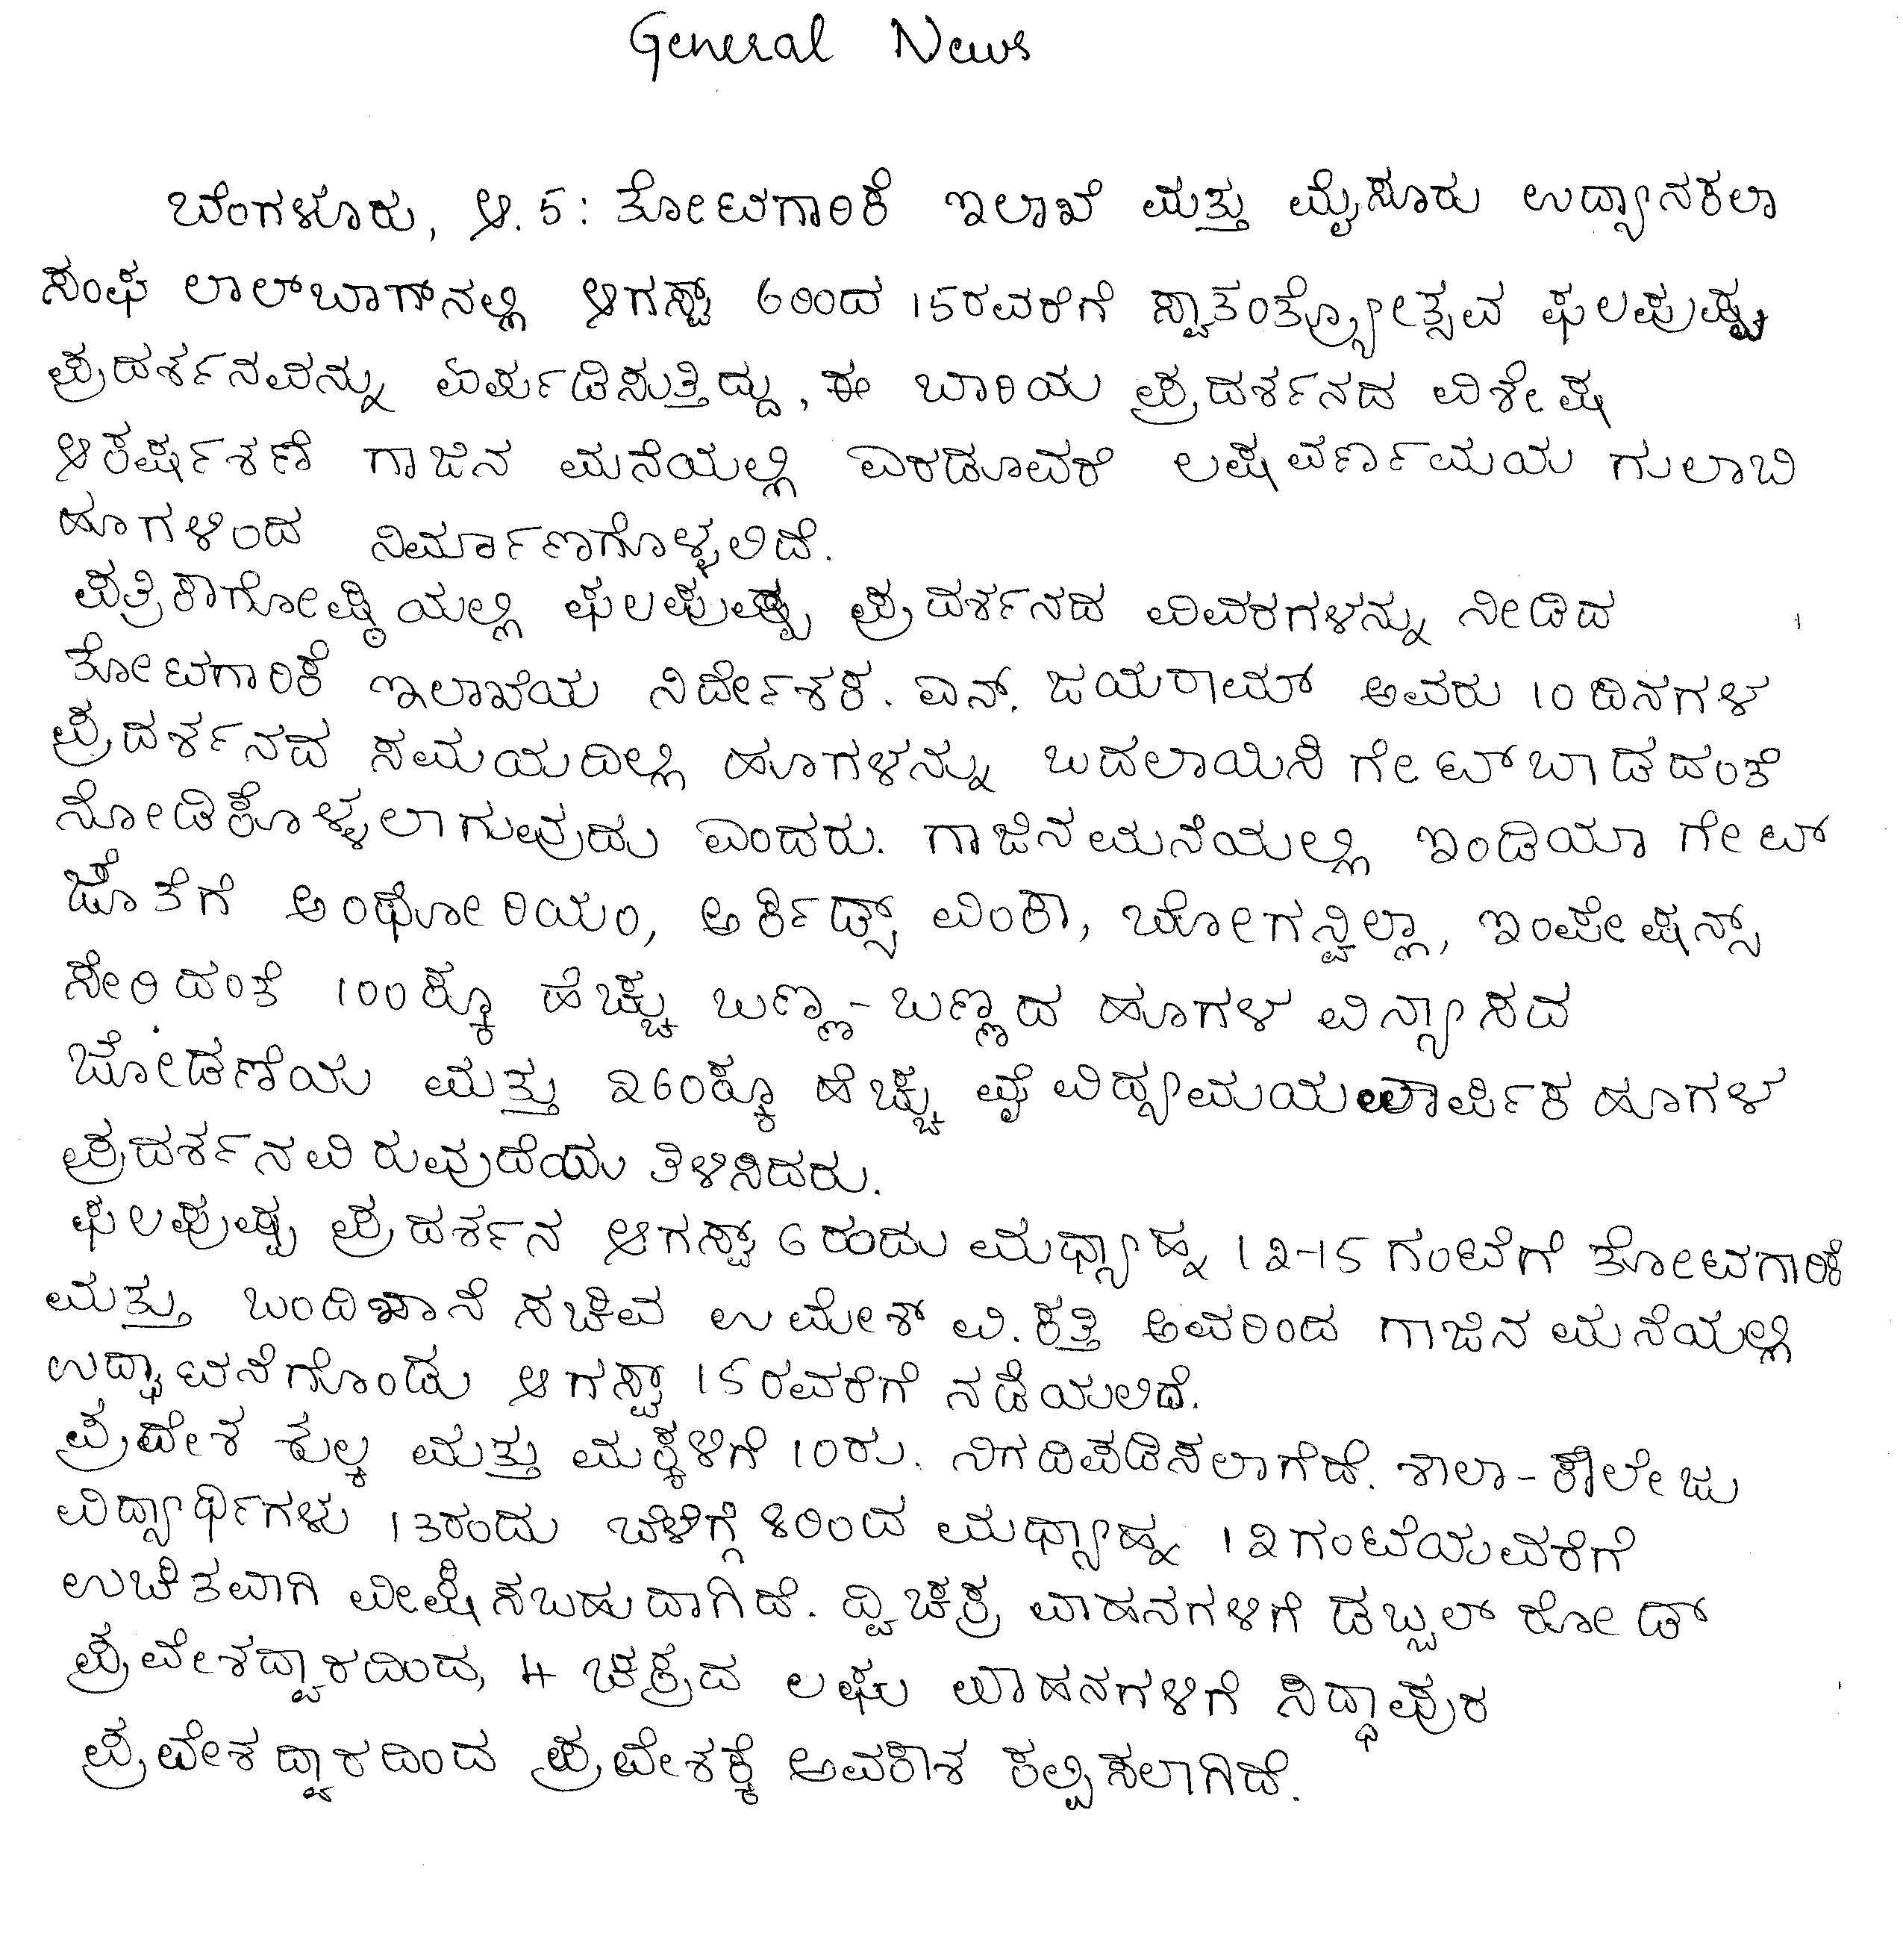 General News
ಬೆಂಗಳೂರು, ಆ. 5: ತೋಟಗಾರಿಕೆ ಇಲಾಖೆ ಮತ್ತು ಮೈಸೂರು ಉದ್ಯಾನಕಲಾ
ಸಂಘ ಲಾಲ್‌ಬಾಗ್‌ನಲ್ಲಿ ಆಗಸ್ಟ್ 6ರಿಂದ 15ರವರೆಗೆ ಸ್ವಾತಂತ್ರ್ಯೋತ್ಸವ ಫಲಪುಷ್ಪ
ಪ್ರದರ್ಶನವನ್ನು ಏರ್ಪಡಿಸುತ್ತಿದ್ದು, ಈ ಬಾರಿಯ ಪ್ರದರ್ಶನದ ವಿಶೇಷ
ಆಕರ್ಷಕಣೆ ಗಾಜಿನ ಮನೆಯಲ್ಲಿ ಎರಡೂವರೆ ಲಷ ವರ್ಣಮಯ ಗುಲಾಬಿ
ಹೂಗಳಿಂದ ನಿರ್ಮಾಣಗೊಳ್ಳಲಿದೆ.
ಪತ್ರಿಕಾಗೋಷ್ಠಿಯಲ್ಲಿ ಫಲಪುಷ್ಪ ಪ್ರದರ್ಶನದ ವಿವರಗಳನ್ನು ನೀಡಿದ
ತೋಟಗಾರಿಕೆ ಇಲಾಖೆಯ ನಿರ್ದೇಶಕ. ಎನ್. ಜಯರಾಮ್ ಅವರು 10 ದಿನಗಳ
ಪ್ರದರ್ಶನದ ಸಮಯದಲ್ಲಿ ಹೂಗಳನ್ನು ಬದಲಾಯಿಸಿ ಗೇಟ್‌ಬಾಡದಂತೆ
ನೋಡಿಕೊಳ್ಳಲಾಗುವುದು ಎಂದರು. ಗಾಜಿನಮನೆಯಲ್ಲಿ ಇಂಡಿಯಾ ಗೇಟ್
ಜೊತೆಗೆ ಅಂಥೋರಿಯಂ, ಅರ್ಕಿಡ್ಸ್ ವಿಂಕಾ, ಬೋಗನ್ವಿಲ್ಲಾ, ಇಂಪೇಷನ್ಸ್
ಸೇರಿದಂತೆ 100ಕ್ಕೂ ಹೆಚ್ಚು ಬಣ್ಣ-ಬಣ್ಣದ ಹೂಗಳ ವಿನ್ಯಾಸದ
ಜೋಡಣೆಯ ಮತ್ತು 260ಕ್ಕೂ ಹೆಚ್ಚು ವೈವಿಧ್ಯಮಯ ವಾರ್ಷಿಕ ಹೂಗಳ
ಪ್ರದರ್ಶನವಿರುವುದೆಂದು ತಿಳಿಸಿದರು.
ಫಲಪುಷ್ಪ ಪ್ರದರ್ಶನ ಆಗಸ್ಟ್ 6ರಂದು ಮಧ್ಯಾಹ್ನ 12-15 ಗಂಟೆಗೆ ತೋಟಗಾರಿಕೆ
ಮತ್ತು ಬಂದಿಖಾನೆ ಸಚಿವ ಉಮೇಶ್ ವಿ. ಕತ್ತಿ ಅವರಿಂದ ಗಾಜಿನ ಮನೆಯಲ್ಲಿ
ಉದ್ಘಾಟನೆಗೊಂಡು ಆಗಸ್ಟಾ 15ರವರೆಗೆ ನಡೆಯಲಿದೆ.
ಪ್ರವೇಶ ಶುಲ್ಕ ಮತ್ತು ಮಕ್ಕಳಿಗೆ 10ರು. ನಿಗದಿಪಡಿಸಲಾಗೆದೆ. ಶಾಲಾ-ಕಾಲೇಜು
ವಿದ್ಯಾರ್ಥಿಗಳು 13ರಂದು ಬೆಳಿಗ್ಗೆ 8ರಿಂದ ಮಧ್ಯಾಹ್ನ 12ಗಂಟೆಯವರೆಗೆ
ಉಚಿತವಾಗಿ ವೀಷಿಸಬಹುದಾಗಿದೆ. ದ್ವಿಚಕ್ರ ವಾಹನಗಳಿಗೆ ಡಬ್ಬಲ್ ರೋಡ್
ಪ್ರವೇಶದ್ವಾರದಿಂದ, 4 ಚಕ್ರದ ಲಘು ವಾಹನಗಳಿಗೆ ಸಿದ್ಧಾಪುರ
ಪ್ರವೇಶದ್ವಾರದಿಂದ ಪ್ರವೇಶಕ್ಕೆ ಅವಕಾಶ ಕಲ್ಪಿಸಲಾಗಿದೆ.